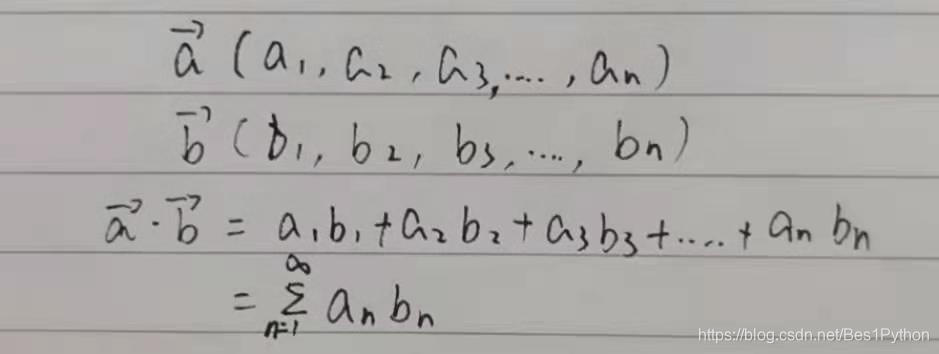 a⃗ (a₁, a₂, a₃, ...., aₙ)
b⃗ (b₁, b₂, b₃, ...., bₙ)
a⃗ · b⃗ = a₁b₁ + a₂b₂ + a₃b₃ + .... + aₙbₙ
= ∑_{n=1}^{∞} aₙbₙ
https://blog.csdn.net/Bes1Python